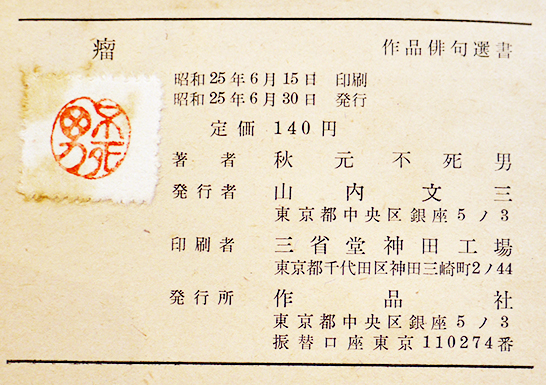 瘤
作品俳句選書
昭和25年6月15日 印刷
昭和25年6月30日 発行
定価 140円
著者 秋元不死男
発行者 山内文三
東京都中央区銀座5ノ3
印刷者 三省堂神田工場
東京都千代田区神田三崎町2ノ44
発行所 作品社
東京都中央区銀座5ノ3
振替口座東京110274番
不死男